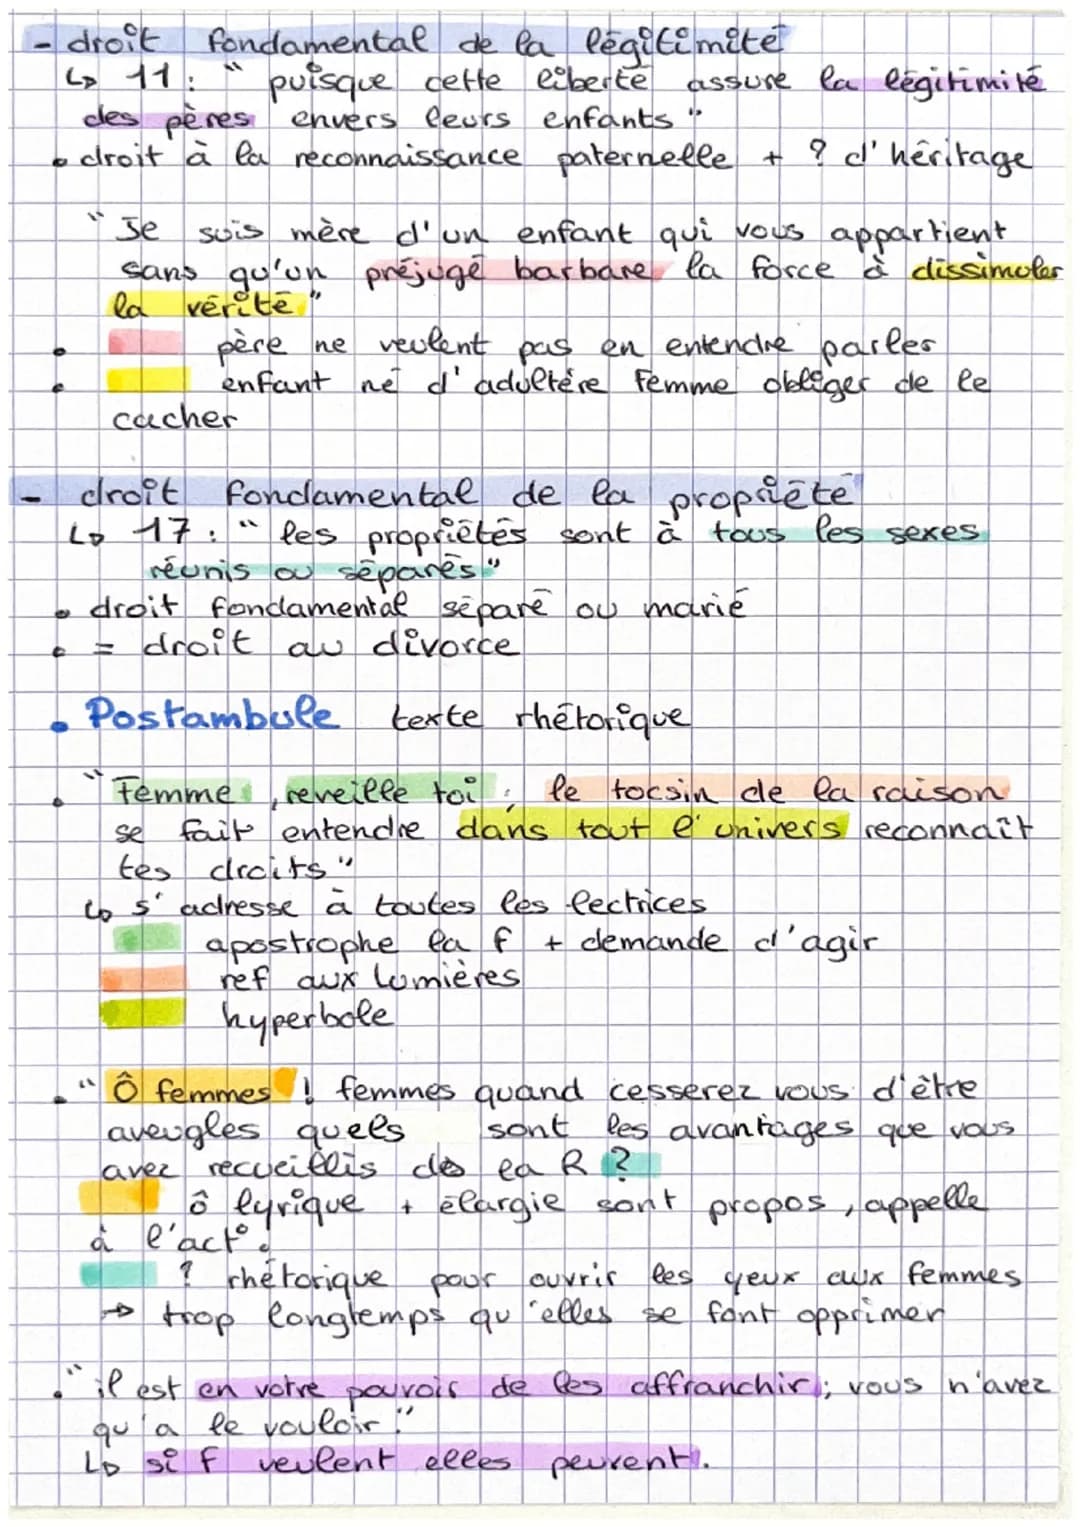 - droit fondamental de la légitimité
↳ 11 : " puisque cette liberté assure la légitimité
des pères envers leurs enfants "
• droit à la reconnaissance paternelle + ? d'héritage
" Je suis mère d'un enfant qui vous appartient
sans qu'un préjugé barbare la force à dissimuler
la vérité "
• père ne veulent pas en entendre parler
• enfant né d'adultère femme obliger de le
cacher
- droit fondamental de la propriété
↳ 17 : " les propriétés sont à tous les sexes
réunis ou séparés "
• droit fondamental séparé ou marié
• = droit au divorce
• Postambule texte rhétorique
• " Femme, reveille toi ; le tocsin de la raison
se fait entendre dans tout l'univers reconnaît
tes droits "
↳ s'adresse à toutes les lectrices
apostrophe la f + demande d'agir
ref aux lumières
hyperbole
• " Ô femmes ! femmes quand cesserez vous d'être
aveugles quels sont les avantages que vous
avez recueillis de la R ?
ô lyrique + élargie sont propos, appelle
à l'act°.
? rhétorique pour ouvrir les yeux aux femmes
→ trop longtemps qu'elles se font opprimer
• " il est en votre pouvoir de les affranchir ; vous n'avez
qu'a le vouloir "
↳ si f veulent elles peuvent.